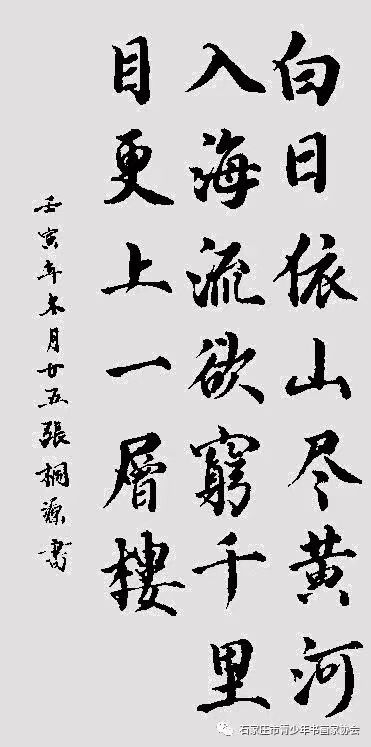 白日依山尽黄河
入海流欲窮千里
目更上一層樓
壬寅年冬月廿五張桐源書
石家庄市青少年书画家协会